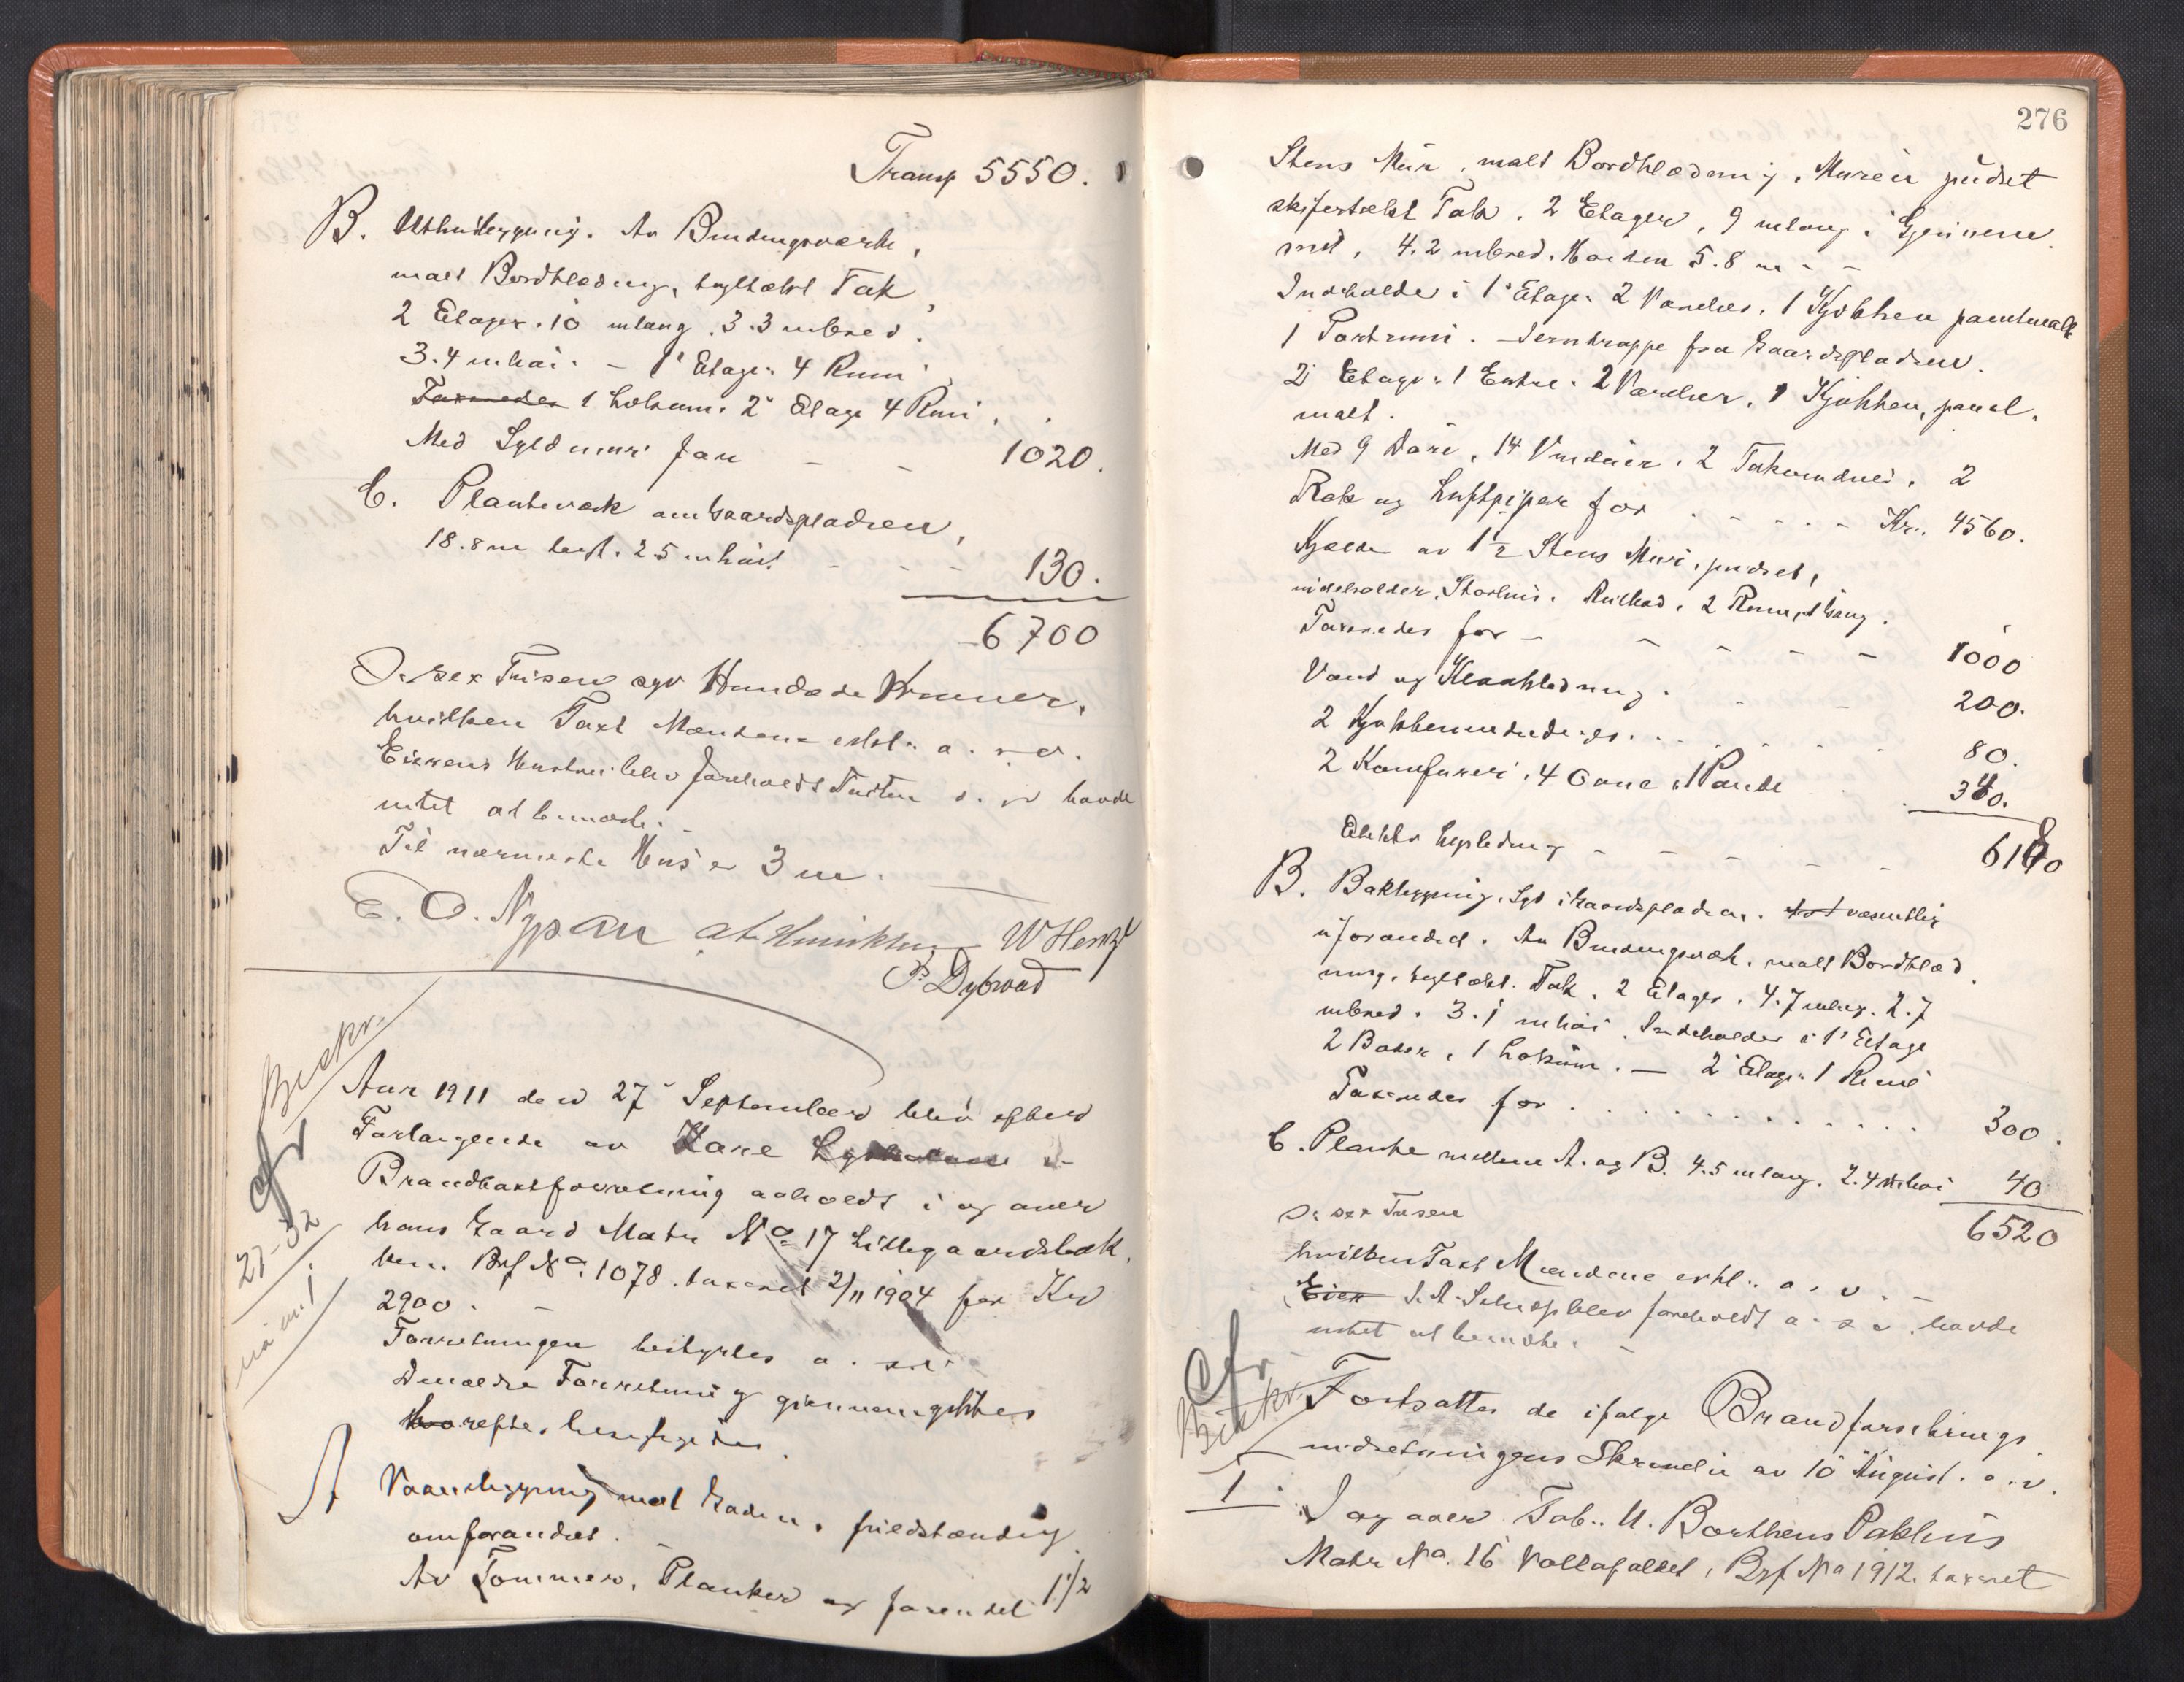 Transp 5550.
B. Uthusbygning. Av Bindingsværk,
malt Bordklædning, tegltækt Tak,
2 Etager. 10 m lang, 3.3 m bred.
3.4 m høi. – 1' Etage: 4 Rum
Taxeredes 1 Lokum. 2' Etage 4 Rum.
Med Syldmur for – – 1020.
C. Plankeværk om Gaardspladsen,
18.8 m langt. 2.5 m høit – – – 130.
6700
D: sex Tusen syv Hundrede Kroner,
hvilken Taxt Mændene erkl. a. s. v.
Eierens Hustru blev foreholdt Taxten o. s. v. havde
intet at bemærke.
Til nærmeste Hus er 3 m.
E. O. Nypan WHenzl
P. Dybwad
Beskr.
cfr
27-32
Aar 1911 den 27' September blev efter
Forlangende av Lane
Brandtaxtforretning avholdt i og over
hans Gaard Matr No 17 Lillegaardsbak-
ken. Brf No. 1078. taxeret 2/11 1904 for Kr
2900. –
Forretningen bestyrtes a. s. v.
Den ældre Forretning gjennemgikkes
hvorefter besigtigedes.
A Vaaningsbygning mot Gaden, fuldstændig
omforandret.
Av Tømmer, Planker og forendel 1 1/2
276
Stens Mur, malt Bordklædning, Muren pudset
skifertækt Tak. 2 Etager, 9 m lang i Gjennem-
snit, 4.2 m bred. Høiden 5.8 m – –
Indeholder i 1' Etage: 2 Værelser, 1 Kjøkken panelmalt
1 Portrum. – Jerntrappe fra Gaardspladsen.
2' Etage: 1 Entre. 2 Værelser, 1 Kjøkken, panel,
malt.
Med 9 Døre, 14 Vinduer, 2 Takvinduer, 2
Røk og Luftpiper for . – – – – Kr. 4560.
Kjelder av 1 1/2 Stens Mur, pudset,
indeholder, Storhus. Rulbod, 2 Rum, 1 Gang.
Taxeredes for – – – – – 1000
Vand og Kloakledning. – – 200.
2 Kjøkkenindredninger. . . . . . 80.
2 Komfurer, 4 Ovne, 1 Pande 340.
Elektr Lysledning – – – – – 6180
B. Bakbygning. Syd i Gaardspladsen. tot væsentlig
uforandret. Av Bindingsværk, malt Bordklæd-
ning, tegltækt Tak, 2 Etager, 4.7 m lang. 2.7
m bred. 3.1 m høi. Indeholder i 1' Etage
2 Boder, 1 Lokum. – 2' Etage: 1 Rum
Taxeredes for . . . . . . . . . . . . 300.
C. Planke mellem A. og B. 4.5 m lang. 2.4 m høi 40
6520
D: sex Tusen
hvilken Taxt Mændene erkl. a. s. v. –
Eier J. A. Schup blev foreholdt a. s. v. havde
intet at bemærke. –
Cfr
Beskr.
Fortsattes de ifølge Brandforsikrings
indretningens Skrivelse av 10 August. a. s. v.
1. I og over Fab. A. Borthens Pakhus
Matr No. 16 Vollafaldet, Brf No 1912. taxeret